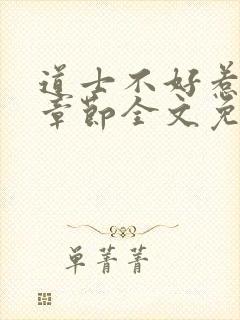 道士不好惹
章节全文免
单菁菁